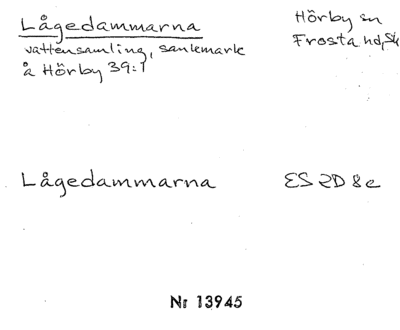 Lågedammarna
Hörby sn
vattensamling, sankmark
Frosta hd, Sk
å Hörby 39:1
Lågedammarna
ES 2D 8c
Nr 13945